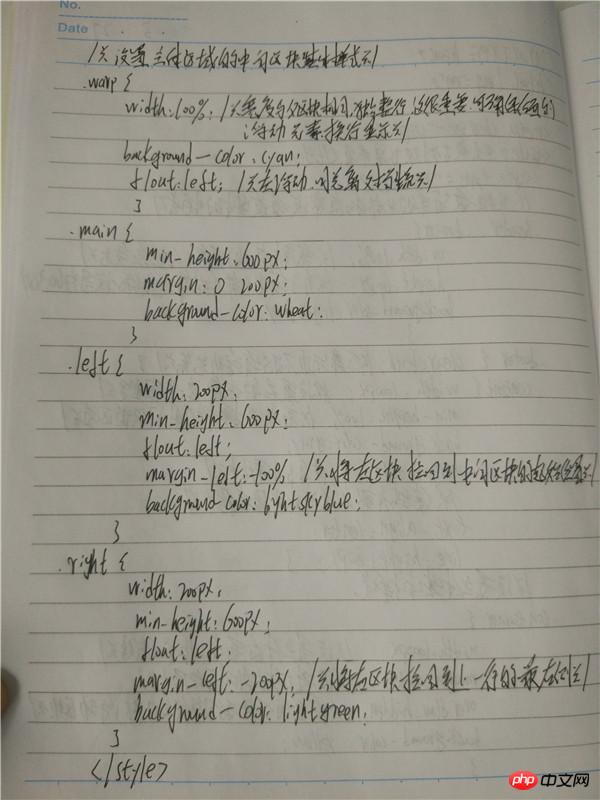 No.
Date
/* 设置主体区域的中间区块基本样式 */
.warp {
width:100%; /* 宽度与父区块相同,独占整行,这很重要,可
浮动元素换行显示 */
background-color:cyan;
float:left; /* 左浮动,脱离文档流 */
}
.main {
min-height:600px;
margin:0 200px;
background-color:wheat;
}
.left {
width:200px;
min-height:600px;
float:left;
margin-left:-100% /* 将左区块拉回到中间区块的起始位置 */
background-color:lightskyblue;
}
.right {
width:200px;
min-height:600px;
float:left;
margin-left:-200px; /* 将右区块拉回到上一行的最右侧 */
background-color:lightgreen;
}
</style>
php中文网